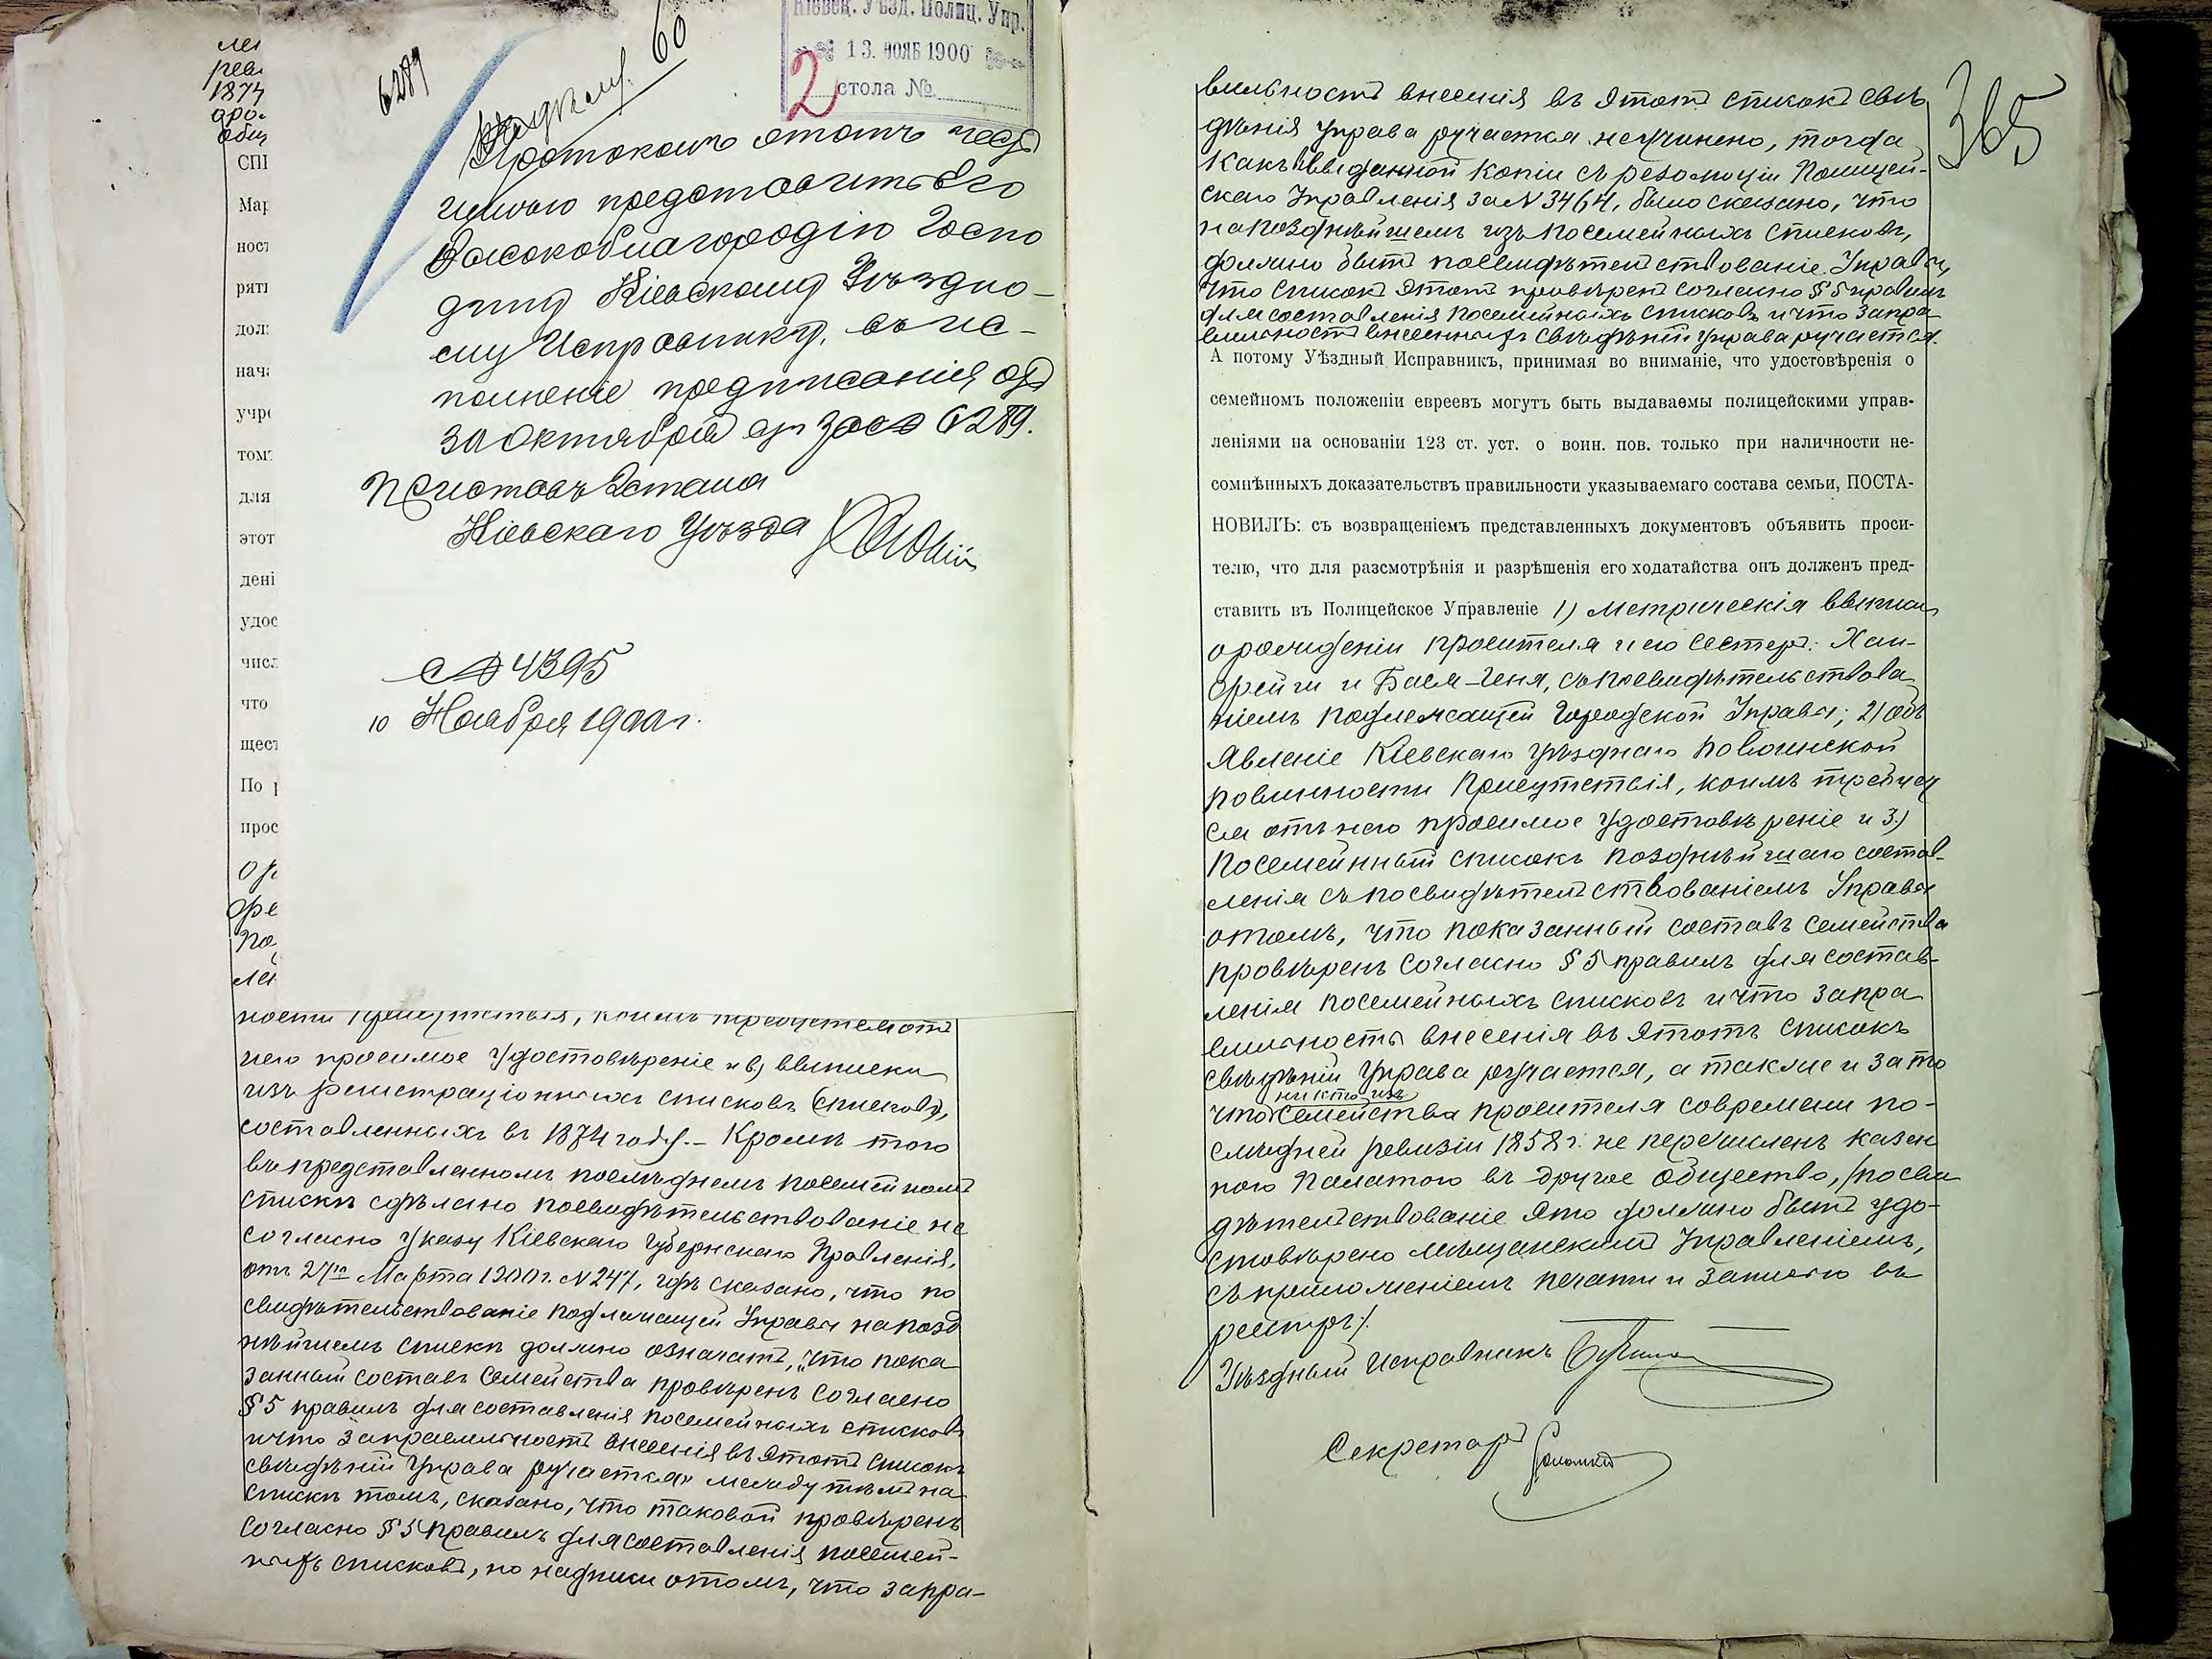 лен
реви
1874
СПІ
Мар
ност
ряті
дол
нача
учре
том
для
этот
дені
удос
числ
что
щест
По
прос
оре
по
6289
60
Кіевск. Уѣзд. Полиц. Упр.
13. НОЯБ 1900
2 стола №
Протоколъ этотъ честь
имѣю представить Его
Высокоблагородію Госпо
дину Кіевскому Уѣздно-
му Исправнику, въ ис-
полненіе предписанія отъ
30 Октября с.г. за № 6289.
Приставъ 2 стана
Кіевскаго Уѣзда
№ 4395
10 Ноября 1900 г.
ности Присутствія, коимъ требуется отъ
него просимое удостовѣреніе и в) выписки
изъ регистраціонныхъ списковъ (списковъ),
составленныхъ въ 1874 году. – Кромѣ того
въ представленномъ послѣднемъ посемейномъ
спискѣ сдѣлано посвидѣтельствованіе не
согласно указу Кіевскаго Губернскаго Правленія,
отъ 27го Марта 1900 г. № 247, гдѣ сказано, что по
свидѣтельствованіе подлежащей Управы на позд
нѣйшемъ спискѣ должно означать, "что пока
занный составъ семейства провѣренъ согласно
§ 5 правилъ для составленія посемейныхъ списковъ
и что за правильность внесенія въ этотъ списокъ
свѣдѣній Управа ручается" между тѣмъ на
спискѣ томъ, сказано, что таковой провѣренъ
согласно § 5 правилъ для составленія посемей-
ныхъ списковъ, но надписи о томъ, что за пра-
365
вильность внесенія въ этотъ списокъ свѣ
дѣнія Управа ручается не учинено, тогда
какъ въ выданной копіи съ резолюціи Полицей-
скаго Управленія за № 3464, было сказано, что
на позднѣйшемъ изъ посемейныхъ списковъ,
должно быть посвидѣтельствованіе Управы,
что списокъ этотъ провѣренъ согласно § 5 правилъ
для составленія посемейныхъ списковъ и что за пра
вильность внесенныхъ свѣдѣній Управа ручается.
А потому Уѣздный Исправникъ, принимая во вниманіе, что удостовѣренія о
семейномъ положеніи евреевъ могутъ быть выдаваемы полицейскими управ-
леніями на основаніи 123 ст. уст. о воин. пов. только при наличности не-
сомнѣнныхъ доказательствъ правильности указываемаго состава семьи, ПОСТА-
НОВИЛЪ: съ возвращеніемъ представленныхъ документовъ объявить проси-
телю, что для разсмотрѣнія и разрѣшенія его ходатайства онъ долженъ пред-
ставить въ Полицейское Управленіе 1) метрическія выписи
о рожденіи просителя и его сестеръ: Хаи-
Фрейги и Баси-Гени, съ посвидѣтельствова
ніемъ подлежащей Городской Управы; 2) объ
явленіе Кіевскаго уѣзднаго по воинской
повинности Присутствія, коимъ требует
ся отъ него просимое удостовѣреніе и 3)
посемейный списокъ позднѣйшаго состав-
ленія съ посвидѣтельствованіемъ Управы
о томъ, что показанный составъ семейства
провѣренъ согласно § 5 правилъ для состав-
ленія посемейныхъ списковъ и что за пра
вильность внесенія въ этотъ списокъ
свѣдѣній Управа ручается, а также и за то
что никто изъ семейства просителя со времени по-
слѣдней ревизіи 1858 г. не перечисленъ казен
ною Палатою въ другое общество, /посви
дѣтельствованіе это должно быть удо-
стовѣрено мѣщанскимъ Управленіемъ,
съ приложеніемъ печати и записью въ
реестръ/.
Уѣздный Исправникъ
Секретарь